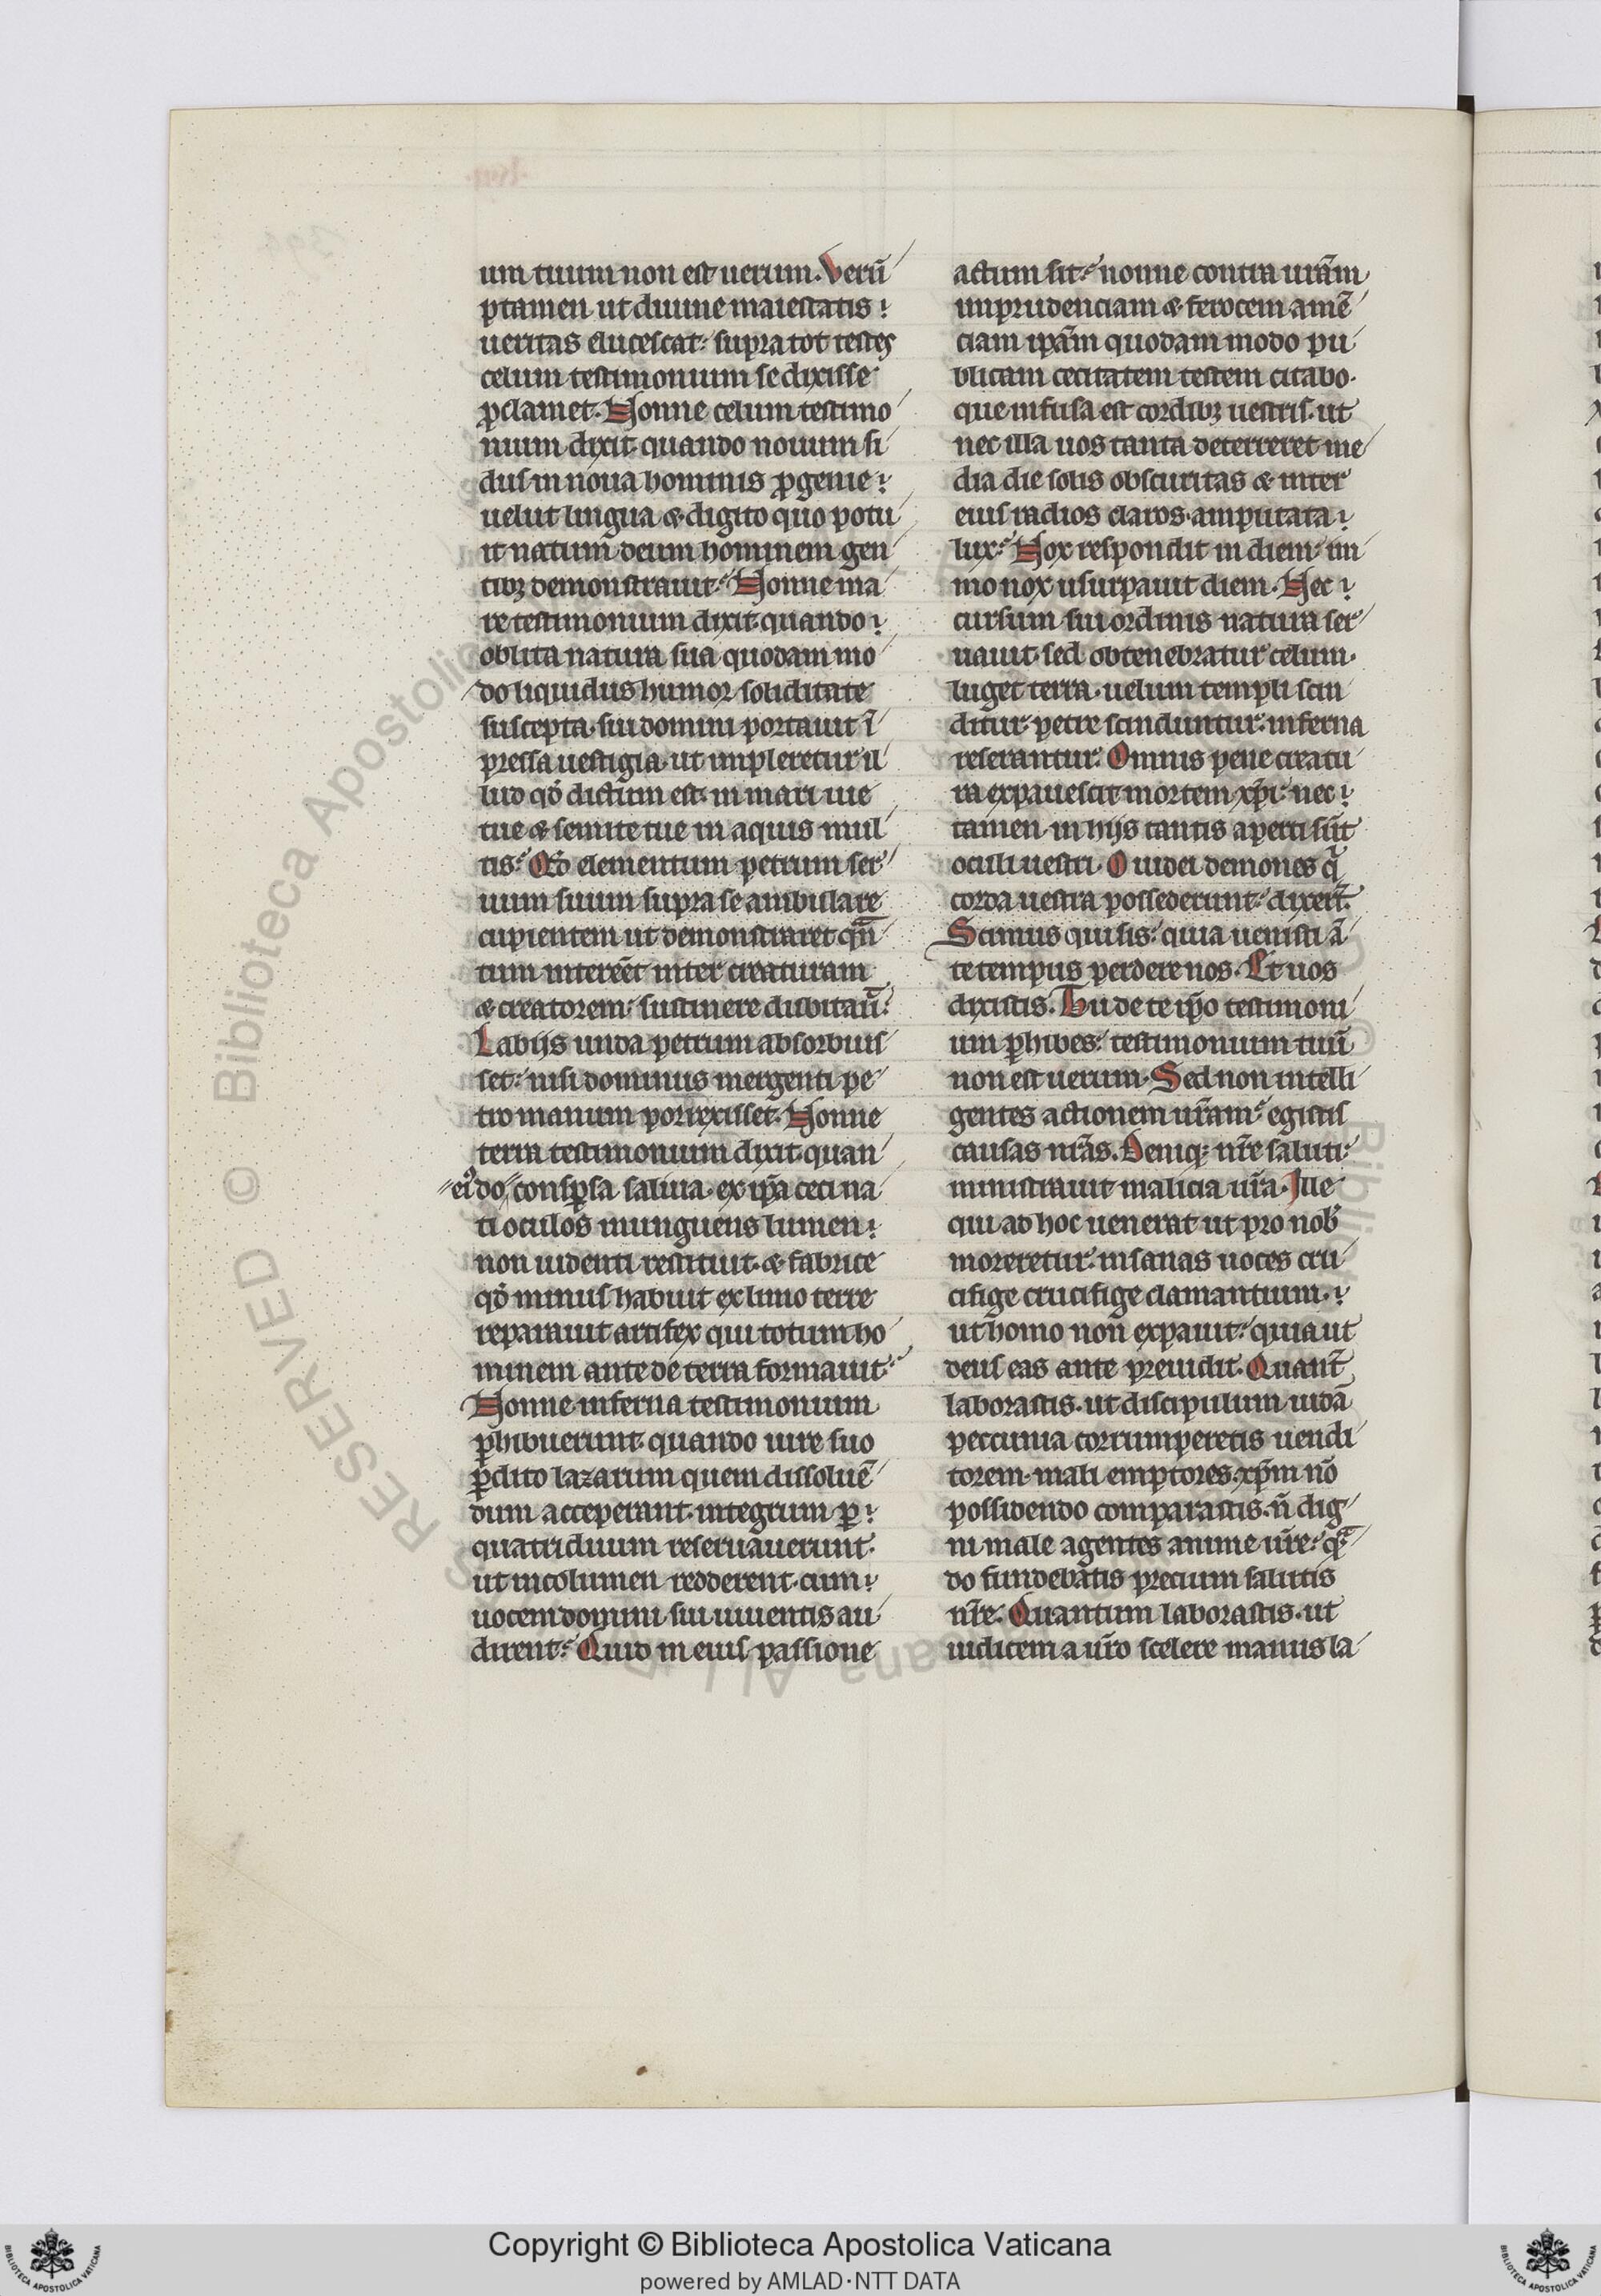 um tuum non est uerum. Verū
ptamen ut diuine maiestatis
ueritas elucescat: supra tot testes
celum testimonium se dixisse
ꝓclamet. Nonne celum testimo
nium dixit quando nouum si
dus in noua hominis ꝓgenie
uelut lingua & digito quo potu
it natum deum hominem gen
tibꝫ demonstrauit: Nonne ma
re testimonium dixit quando
oblita natura sua quodam mo
do liquidus humor soliditate
suscepta. sui domini portauit ī
pressa uestigia. ut impleretur il
lud qď dictum est. in mari uie
tue & semite tue in aquis mul
tis: Qď elementum petrum ser
uum suum supra se ambulare
cupientem ut demonstraret q̄n
tum intereēt inter creaturam
& creatorem: sustinere dubitaū:
Labijs unda petrum absorbuis
set: nisi dominus mergenti pe
tro manum porrexisset. Nonne
terra testimonium dixit. quan
ei' do, conspersa saliua. ex ip̄a ceci na
ti oculos inunguens lumen
non uidenti restituit. & fabrice
qď minus habuit ex limo terre
reparauit artifex qui totum ho
minem ante de terra formauit:
Nonne inferna testimonium
ꝑhibuerunt. quando iure suo
ꝑdito lazarum quem dissoluē
dum acceperant. integrum ꝑ
quatriduum reseruauerunt.
ut incolumen redderent. cum
uocem domini sui uiuentis au
dirent: Quid in eius passione
actum sit: nonne contra urām
imprudenciam & ferocem amē
ciam ip̄am quodam modo pu
blicam cecitatem testem citabo.
que infusa est cordibꝫ uestris. ut
nec illa uos tanta deterreret me
dia die solis obscuritas & inter
eius radios claros. amputata
lux: Nox respondit in diem. im
mo nox usurpauit diem. Nec
cursum sui ordinis natura ser
uauit. sed obtenebratur celum.
luget terra. uelum templi scin
ditur. petre scinduntur. inferna
reserantur. Omnis pene creatu
ra expauescit mortem xp̄i. nec
tamen in hijs tantis aperti sūt
oculi uestri. O iudei demones q̄
corda uestra possederunt: dixert̄.
Scimus qui sis: quia uenisti ā
te tempus perdere nos. Et uos
dixistis. Tu de te ip̄o testimoni
um ꝑhibes: testimonium tuū
non est uerum. Sed non intelli
gentes actionem ur̄am: egistis
causas nr̄as. Deniqꝫ nr̄e saluti
ministrauit malicia ur̄a. Ille
qui ad hoc uenerat ut pro nob̄
moreretur. insanas uoces cru
cifige crucifige clamantium.
ut homo non expauit: quia ut
deus eas ante preuidit. Quant̄
laborastis. ut discipulum iudā
peccunia corrumperetis uendi
torem. mali emptores. xp̄m nō
possidendo comparastis. n̄ dig
ni male agentes anime ur̄e: q̄
do fundebatis precium salutis
nr̄e. Quantum laborastis. ut
iudicem a ur̄o scelere manus la
© Biblioteca Apostolica
RESERVED
Copyright © Biblioteca Apostolica Vaticana
powered by AMLAD·NTT DATA